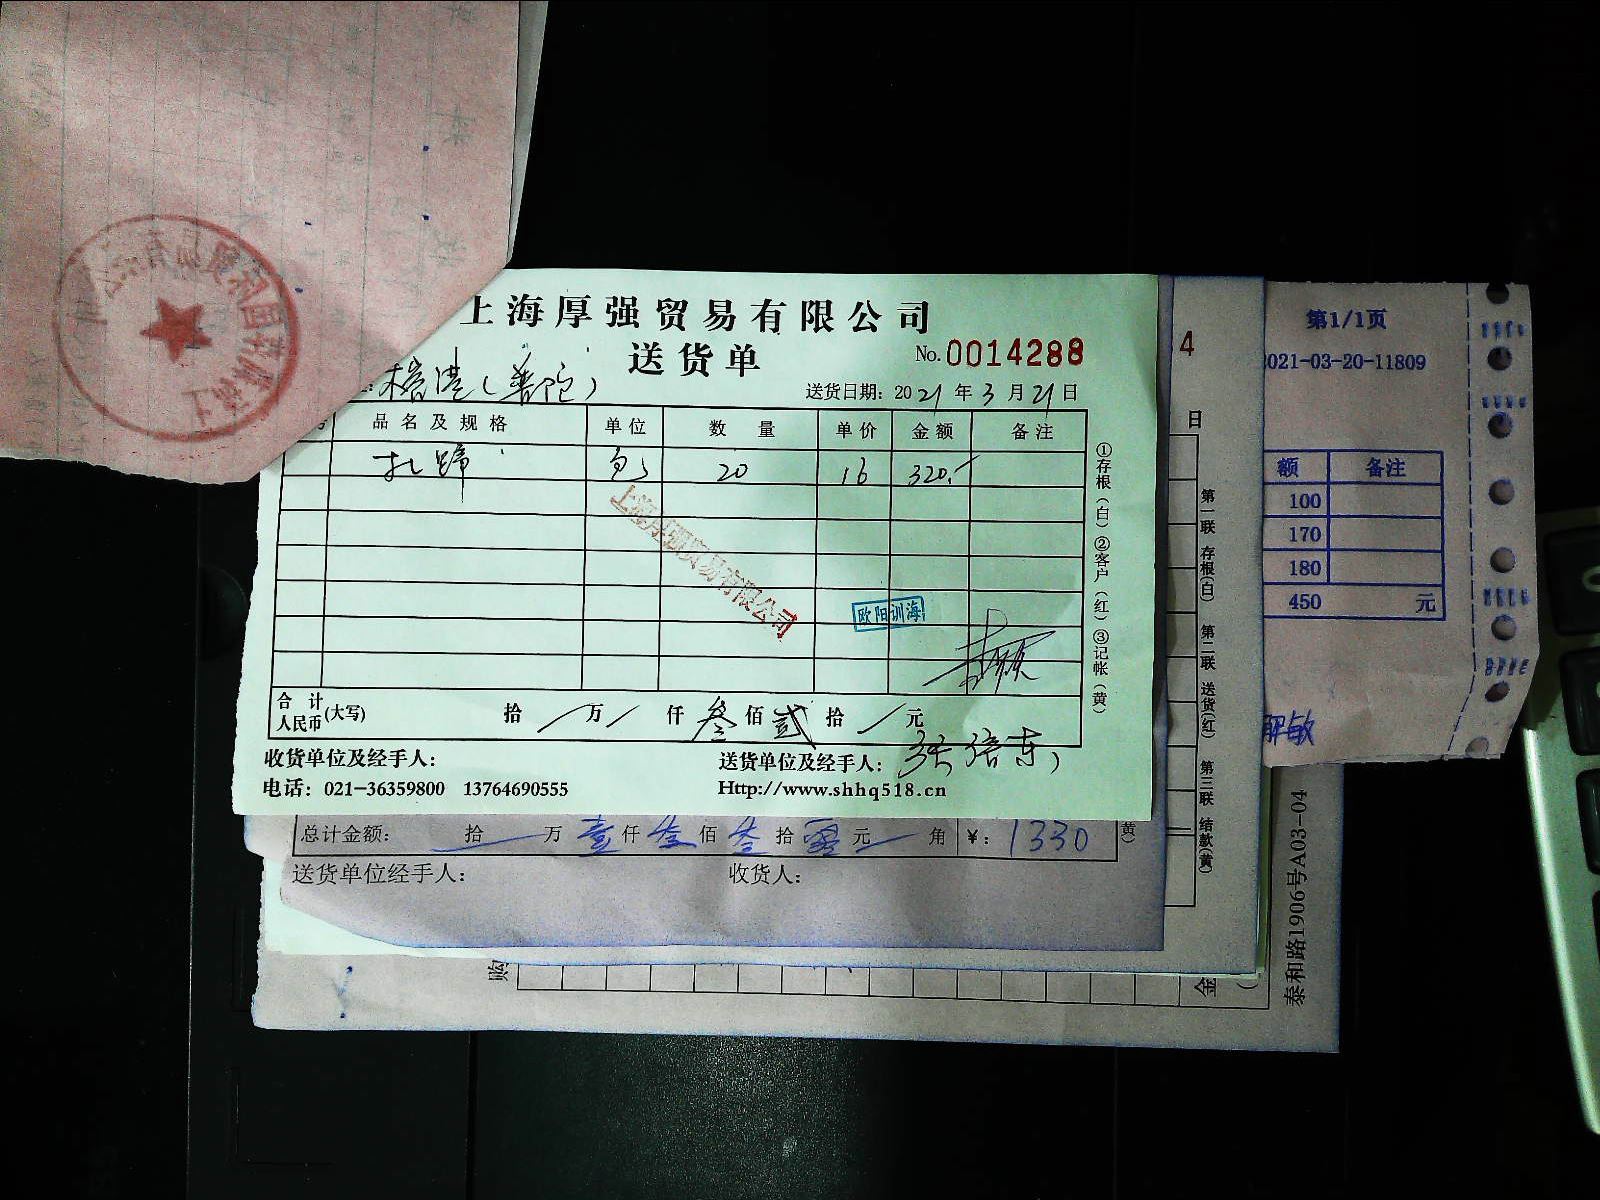 上海厚强贸易有限公司
送货单
No. 0014288
(普陀)
送货日期: 2021 年 3 月 21 日
品名及规格 单位 数量 单价 金额 备注
扎蹄 包 20 16 320.-
上海厚强贸易有限公司
欧阳训海
合计人民币(大写) 拾 万 仟 叁 佰 贰 拾 元
收货单位及经手人:
送货单位及经手人: 张培东
电话: 021-36359800 13764690555
Http://www.shhq518.cn
①存根(白)②客户(红)③记帐(黄)
总计金额: 拾 万 壹 仟 叁 佰 叁 拾 零 元 角 ¥: 1330
送货单位经手人:
收货人:
黄)
4
日
第一联 存根(白) 第二联 送货(红) 第三联 结款(黄)
第1/1页
021-03-20-11809
额 备注
100
170
180
450 元
解敏
购
金
泰和路1906号A03-04